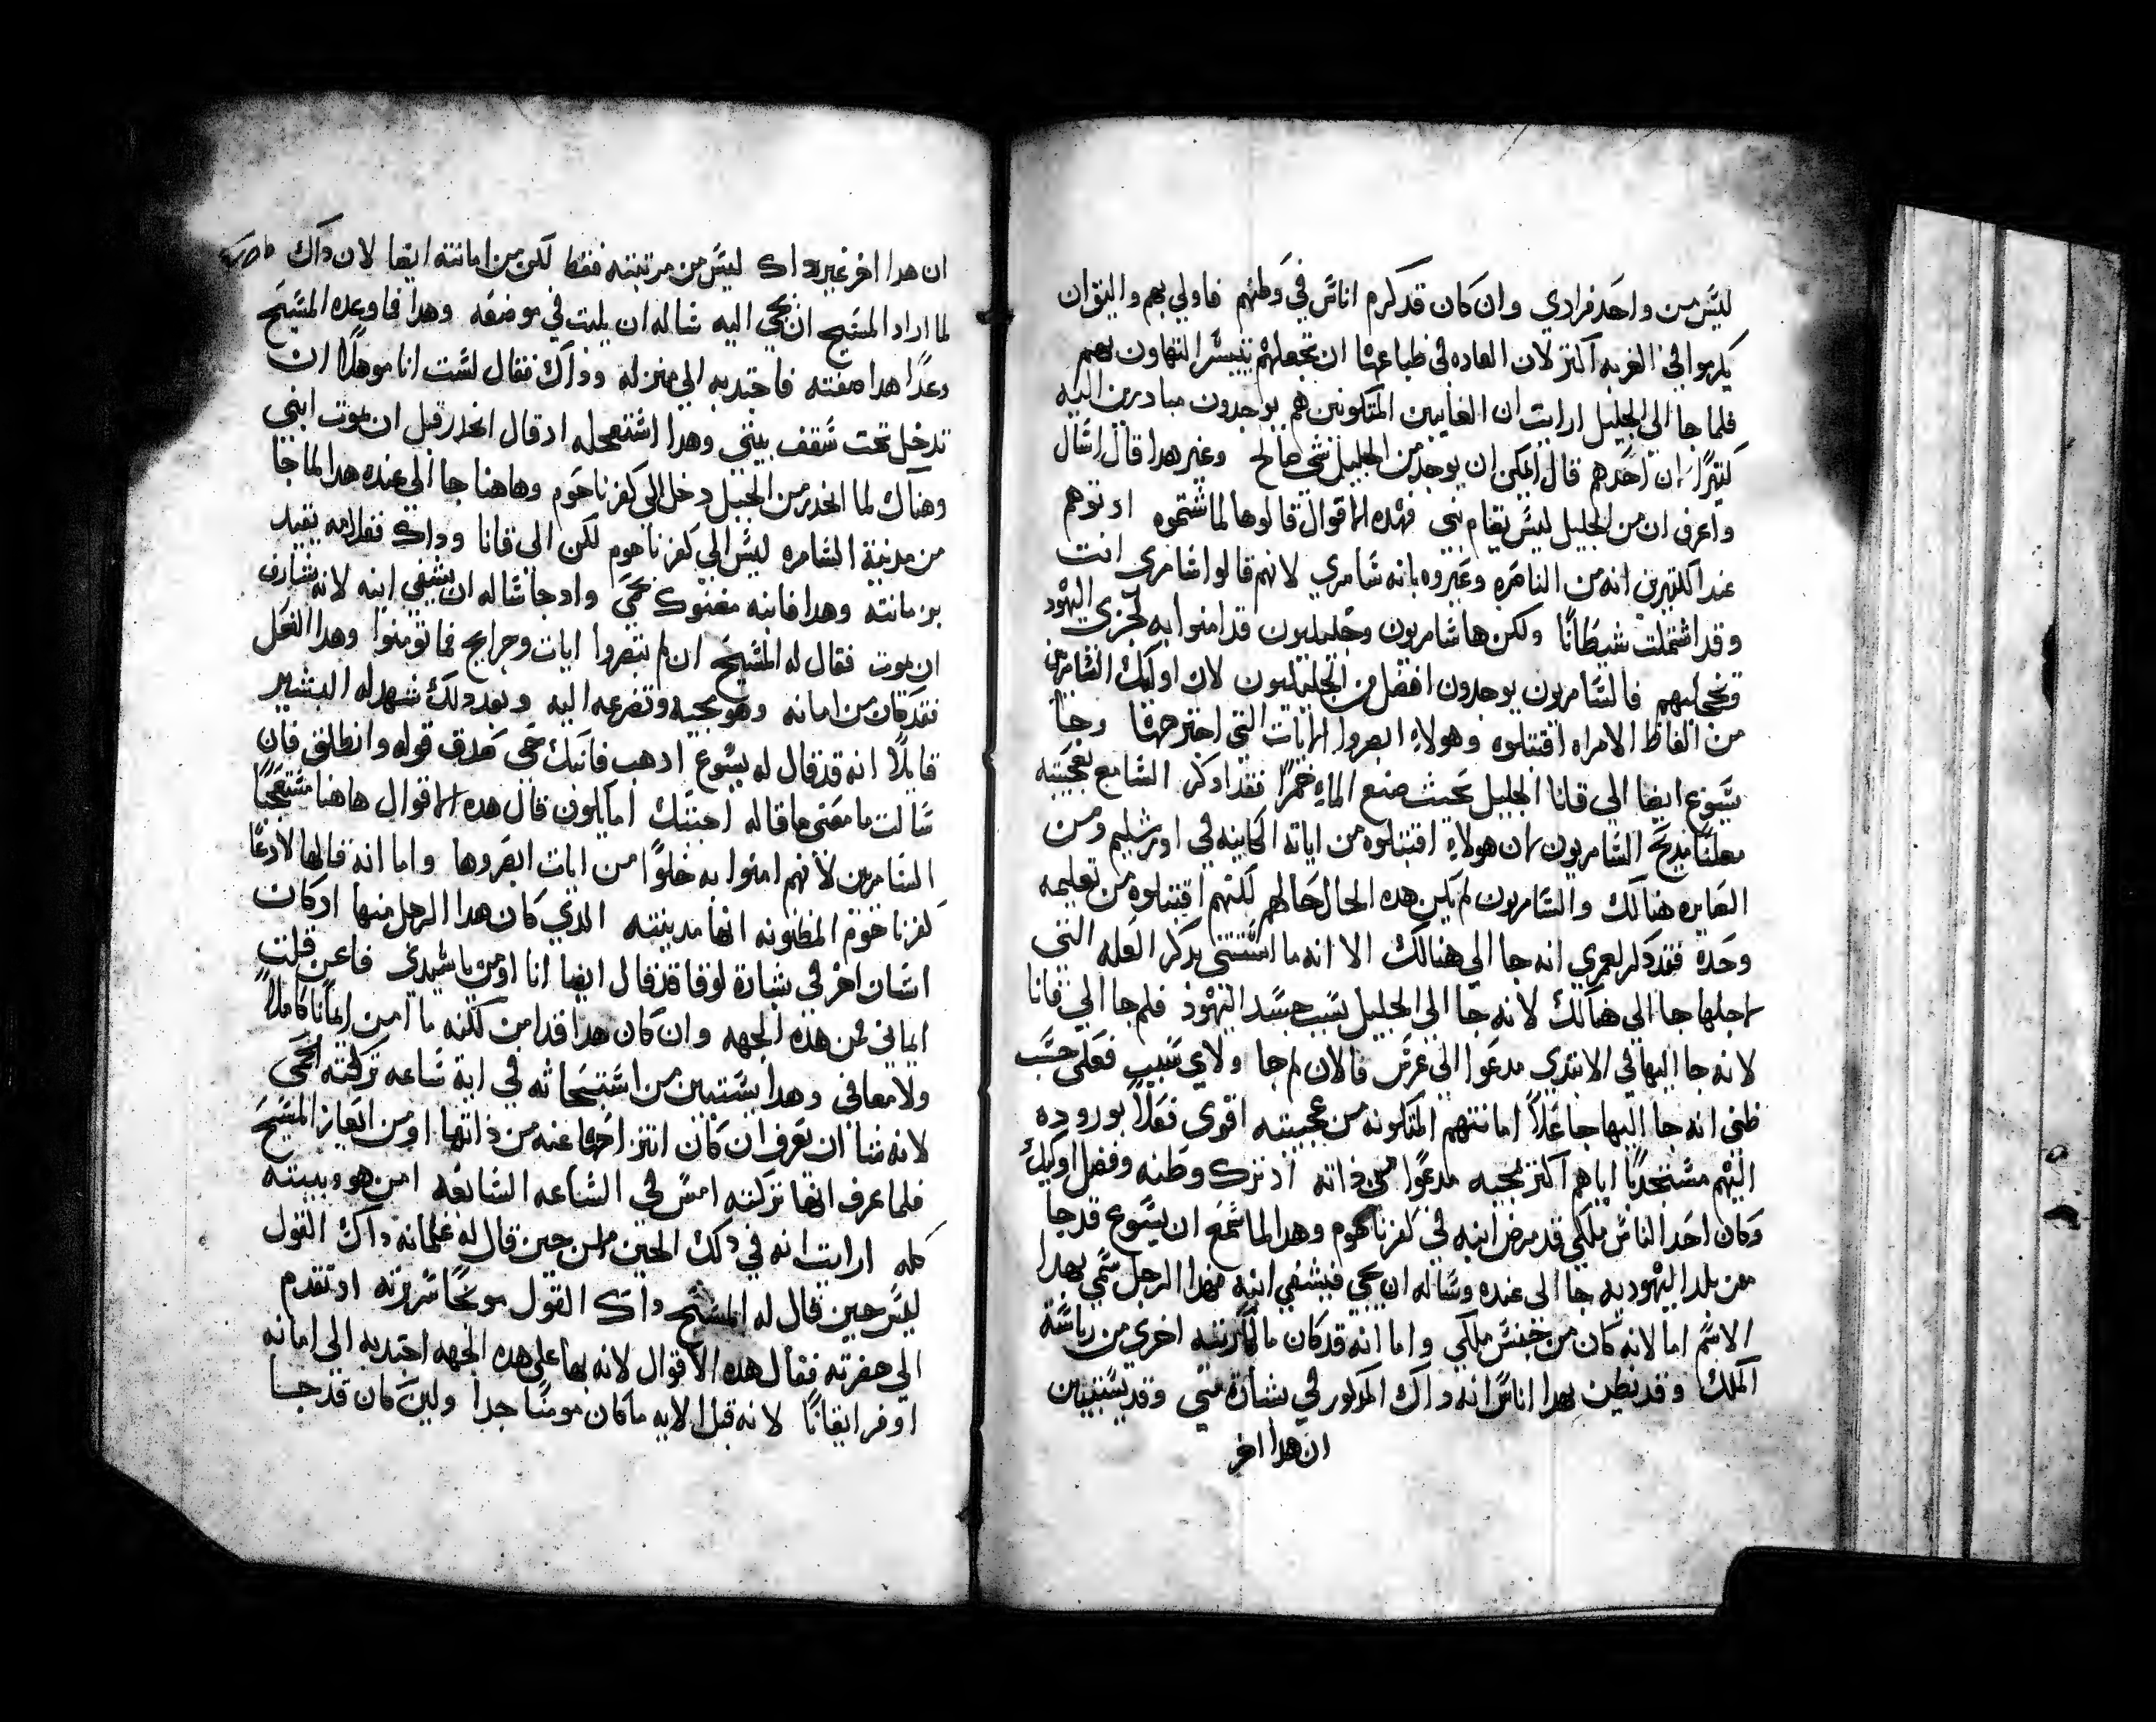 ليس من واحد فرادي وان كان قد كرم اناس في وطنهم فاولي بهم واليق ان
يكرموا في الغربه اكتر لان العاده في طباعها ان تجعلهم تيسر التهاون بهم
فلما جا الي الجليل ارايت ان الغايبين المتكونين هم يوجدون مبادرين اليه
كتيرًا ان احدهم قال ايمكن ان يوجد من الجليل شي صالح وغير هدا قال اسال
واعرف ان من الجليل ليس يقام نبي فهده الاقوال قالوها لما شتموه اد توهم
عند اكتيرين انه من الناصره وعيروه بانه سامري لانهم قالوا سامري انت
وقد اشتملت شيطانًا ولكن ها سامريون وجليليون قد امنوا به لخزي اليهود
وتخجيلهم فالسامريون يوجدون افضل من الجليليون لان اوليك السامرين
من الفاظ الامراه اقتبلوه وهولاء ابصروا الايات التي اجترحها وجا
يسوع ايضا الي قانا الجليل بحيث صنع الماء خمرًا فقد ادكر السامع بعجيبته
معلنًا مديح السامريون لان هولاء اقتبلوه من اياته الكاينه في اورشليم ومن
الصايره هنالك والسامريون لم يكن هده الحال حالهم لكنهم اقتبلوه من تعليمه
وحده فقد دكر لعمري انه جا الي هنالك الا انه ما استتني بدكر العله التي
لاجلها جا الي هنالك لانه جا الي الجليل بسبب حسد اليهود فلم جا الي قانا
لانه جا اليها في الابتدي مدعوا الي عرس فالان لم جا ولاي سبب فعلي حسب
ظني انه جا اليها جاعلاً امانتهم المتكونه من عجيبته اقوي فعلاً بوروده
اليهم مستجدبًا اياهم اكتر بمجيه مدعوًا من داته اد ترك وطنه وفضل اوليك
وكان احد الناس ملكي قد مرض ابنه في كفرناحوم وهدا لما سمع ان يسوع قد جا
من بلد اليهوديه جا الي عنده وساله ان يجي فيشفي ابنه فهدا الرجل سمي بهدا
الاسم اما لانه كان من جنس ملكي واما انه قد كان مالكًا رتبته اخري من رياسة
الملك وقد يظن بهدا اناس انه داك المدكور في بشارة متي وقد يستبين
ان هدا اخر
ان هدا اخر غير داك ليس من مرتبته فقط لكن من امانته ايضا لان داك
لما اراد المسيح ان يجي اليه ساله ان يلبت في موضعه وهدا فاوعده المسيح
وعدًا هدا صفته فاجتدبه الي منزله وداك فقال لست انا موهلاً ان
تدخل تحت سقف بيتي وهدا استعجله اد قال انحدر قبل ان يموت ابني
وهناك لما انحدر من الجبل دخل الي كفرناحوم وهاهنا جا الي عنده هدا لما جا
من مدينة السامره ليس الي كفرناحوم لكن الي قانا وداك فغلامه تقيد
بزمانته وهدا فابنه منهوك بحمي واد جا ساله ان يشفي ابنه لانه يشارف
ان يموت فقال له المسيح ان لم تبصروا ايات وجرايح فما تومنوا وهدا الفعل
فقد كان من امانه وهو مجيه وتضرعه اليه وبعد دلك شهد له البشير
قايلاً انه قد قال له يسوع ادهب فابنك حي صدق قوله وانطلق فان
سالت ما معني ما قاله اجبتك اما يكون قال هده الاقوال هاهنا مستعجبًا
السامرين لانهم امنوا به خلوًا من ايات ابصروها واما انه قالها لادعًا
كفرناحوم المظنونه انها مدينته الدي كان هدا الرجل منها ادكان
انسان اخر في بشارة لوقا قد قال ايضا انا اومن يا سيدي فاعن قلت
ايماني فمن هده الجهه وان كان هدا قد امن لكنه ما امن ايمانًا كاملاً
ولا معافي وهدا يستبين من استبحاثه في اية ساعه تركته الحمي
لانه شا ان يعرف ان كان انتزاحها عنه من داتها او من ايعاز المسيح
فلما عرف انها تركته امس في الساعه السابعه امن هو وبيته
كله ارايت انه في دلك الحين امن حين قال له غلمانه داك القول
ليس حين قال له المسيح داك القول موبخًا سريرته اد تقدم
الي حضرته فقال هده الاقوال لانه بها علي هده الجهه اجتدبه الي امانه
اوفر ايقانًا لانه قبل الايه ما كان مومنًا جدا ولين كان قد جا